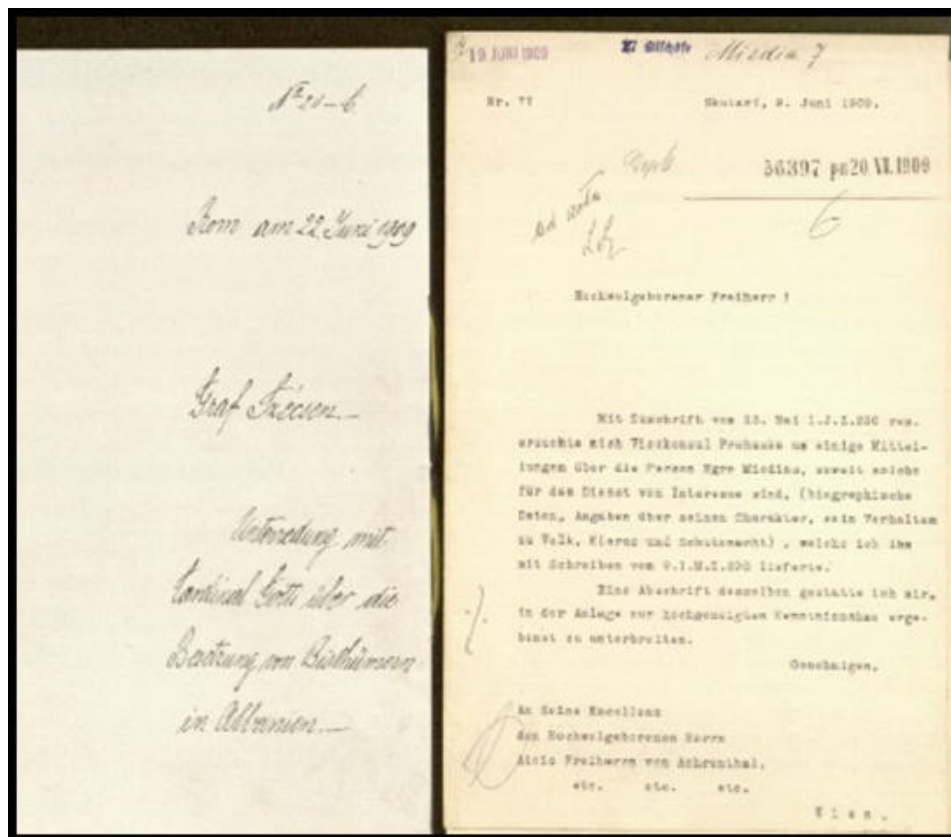 Nº 21–C
Rom am 22 Juni 1909
Graf Szécsen.–
Unterredung mit
Cardinal Gotti über die
Besetzung von Bisthümern
in Albanien.–
19 JUNI 1909
Miedia 7
Nr. 77
Skutari, 9. Juni 1909.
56397 pr 20 VI. 1909
ad acta
6
Hochwolgeborener Freiherr !
Mit Zuschrift vom 23. Mai l.J.Z.230 res.
ersuchte mich Vizekonsul Prohaska um einige Mittei-
lungen über die Person Mgre Miedias, soweit solche
für den Dienst von Interesse sind, (biographische
Daten, Angaben über seinen Charakter, sein Verhalten
zu Volk, Klerus und Schutzmacht) , welche ich ihm
mit Schreiben vom 9.l.M.Z. lieferte.
Eine Abschrift desselben gestatte ich mir,
in der Anlage zur hochgeneigten Kenntnisnahme erge-
benst zu unterbreiten.
Genehmigen,
An Seine Excellenz
den Hochwolgeborenen Herrn
Alois Freiherrn von Aehrenthal,
etc. etc. etc.
Wien.